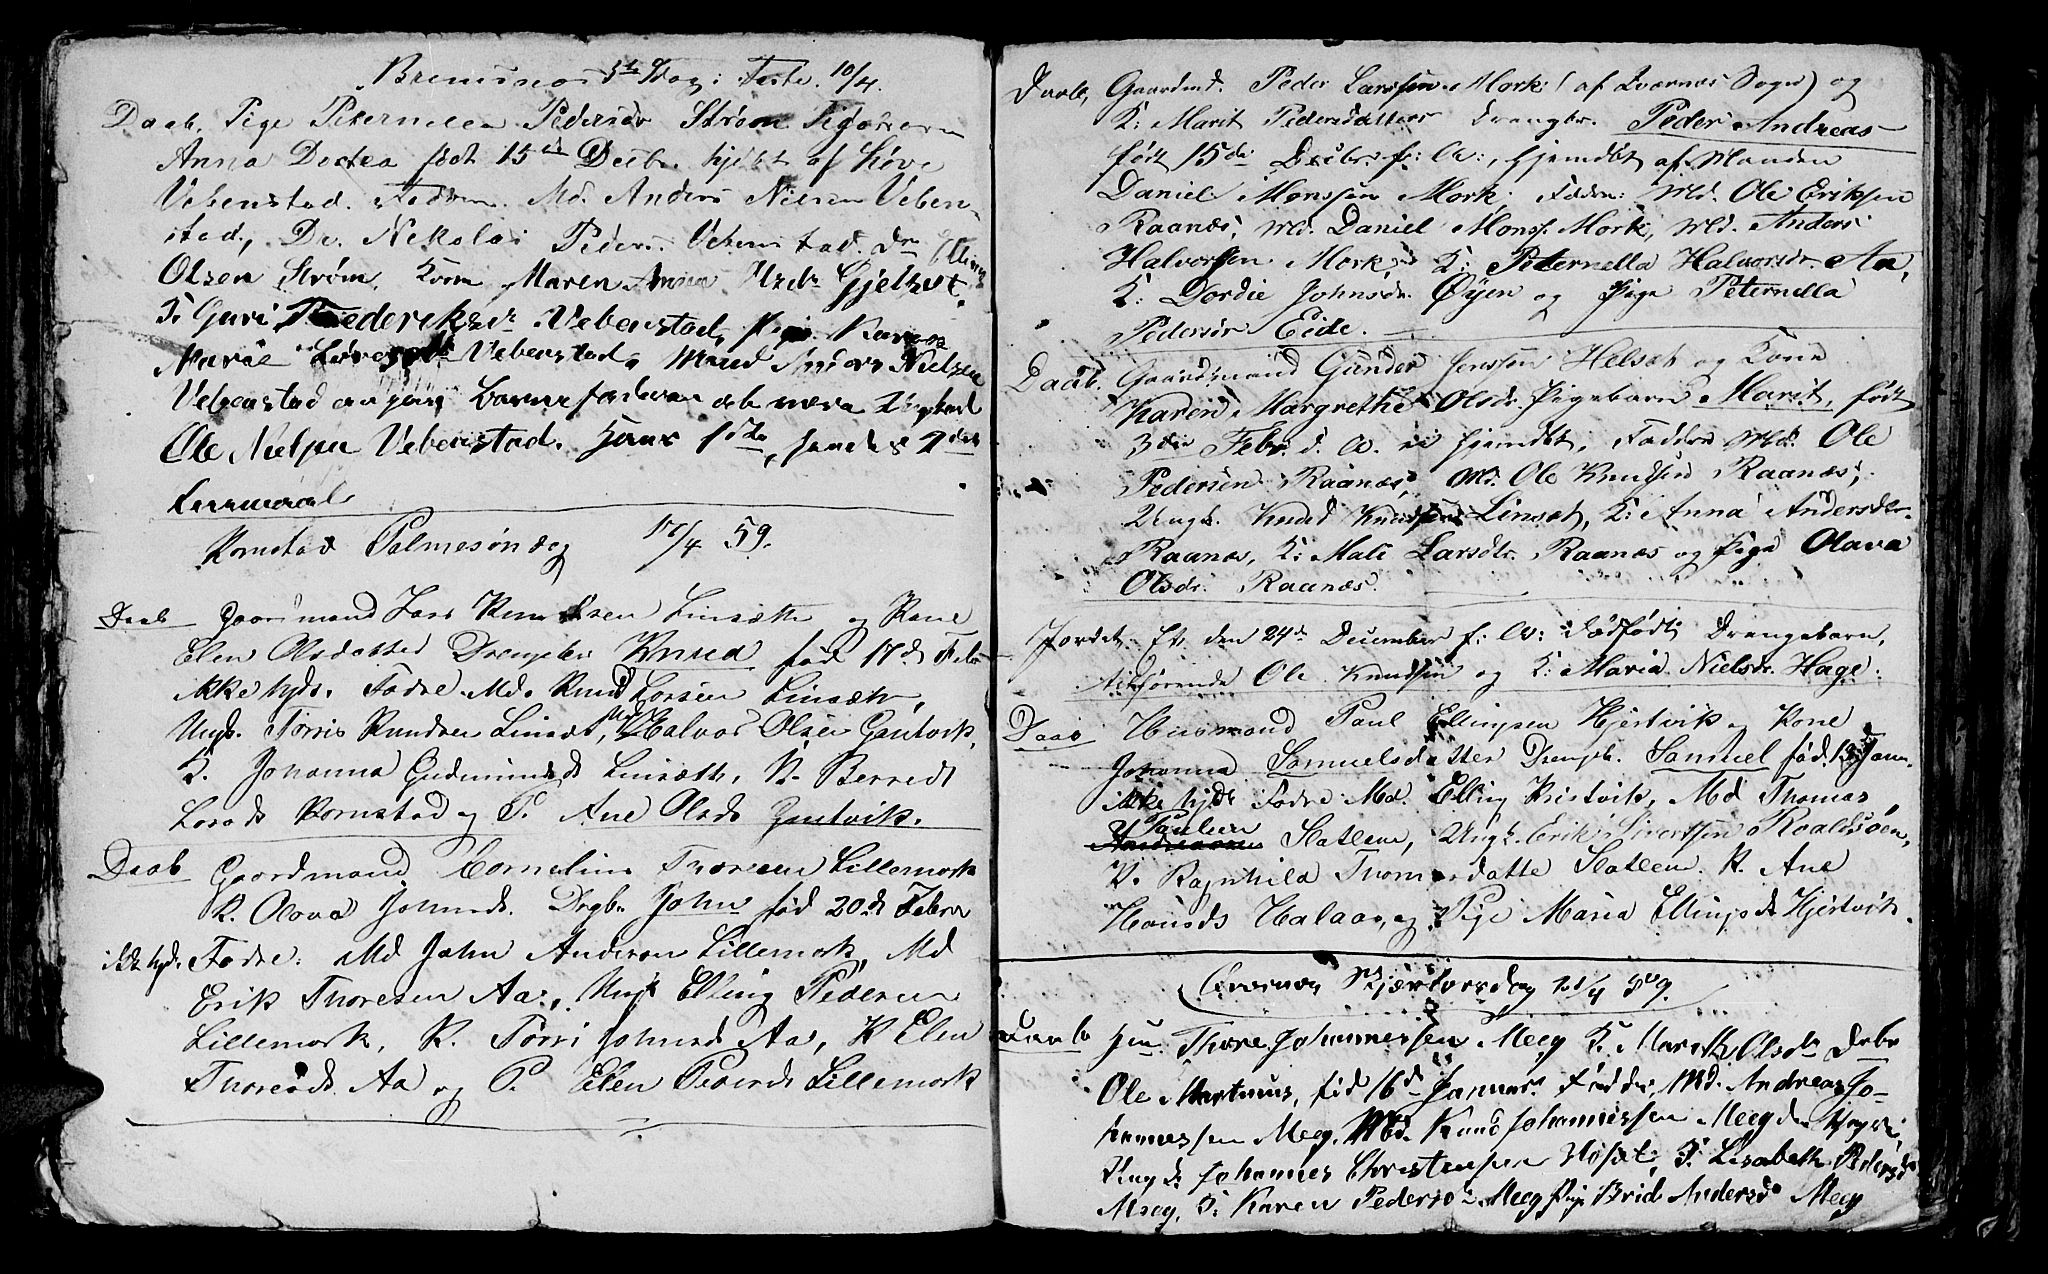 Bremsnes 5te Søndag i Faste 10/4.
Daab. Pige Peternella Pedersdr Strøm Pigebarn
Anna Dortea født 15de Decbr. hjdøbt af Løve
Vebenstad. Faddre Md. Anders Nielsen Veben-
stad, Dr. Nekolai Peders. Vebenstad. Dr. Elling
Olsen Strøm, Kone Maren Anna Gjelset.
P. Guri Frederiksdr Vebenstad, Pige Karen
Marie Vebenstad. Mand Anders Nielsen
Vebenstad angav Barnefaderen at være Ungkarl
Ole Nielsen Vebenstad. Hans 1ste, hendes 2det
Leiermaal
Kornstad Palmesøndag 17/4 59.
Daab Gaardmand Lars Knudsen Linsæth og Kone
Elen Olsdatter Drengebn Knud fød 17d Febr
ikke hjds. Fadre Md. Knud Larsen Linsæth,
Ungk. Torris Knudsen Linsæt, Md Halvor Olsen Gautvik,
K. Johanna Gudmundsd Linsæth, K. Berret
Larsd Kornstad og P. Ane Olsd Gautvik.
Daab Gaardmand Cornelius Thoresen Lillemork
K. Olova Johnsd. Drgbn John fød 20d Febr
ikke hjd. Fadre: Md John Andersen Lillemork, Md
Erik Thoresen Aa, Ungk Elling Pedersen
Lillemork, K. Torri Johnsd Aa, K Elen
Thoresd Aa og P. Elen Pedersd Lillemork
Daab, Gaardmd. Peder Larssen Mork (af Qværnes Sogn) og
K: Marit Pedersdatters Drengbr. Peder Andreas
født 15de Decbr f: A:, hjemdøbt af Manden
Daniel Monssen Mork; Faddr: Md. Ole Eriksen
Raanæs, Md. Daniel Monss. Mork, Md. Anders
Halvorsen Mork, K: Peternella Halvorsdr. Aa,
K: Dordie Johnsdr. Øyen og Pige Peternella
Pedersdr Eide.
Daab. Gaardmand Gunder Jenssen Helsæt og Kone
Karen Margrethe Olsdr. Pigebarn Marit, født
3die Febr. d. A. hjemdøbt, Faddre Md. Ole
Pedersen Raanæs, Md. Ole Knudsen Raanæs,
Ungk. Knud Knudsen Linsæt, K: Anna Andersdr.
Raanæs, K: Mali Larsdtr. Raanæs og Pige Olava
Olsdr. Raanæs.
Jordet. Et den 24de December f: A: dødfødt Drengebarn,
tilhørende Ole Knudsen og K: Maria Nielsdr. Hage.
Daab Husmand Paul Ellingsen Hjertvik og Kone
Johanna Samuelsdatter Drengb. Samuel fød. 13d Janr.
ikke hjdt Fadre Md. Elling Kristvik, Md Thomas
Paulsen
Slatlem, Ungk. Erik Sivertsen Roaldsøen,
K. Ragnhild Thomasdatte Slatlem. K. Ane
Hansds Halaas, og Pige Maria Ellingsd Hjertvik.
Qværnæs Skjærtorsdag 21/4 59.
Daab Thore Johannessen Meeg K. Marith Olsdr Drbr
Ole Martinus, fød 16d Januar. Faddre, Md. Andreas Jo-
hannessen Meeg. Md. Knud Johannessen Meeg
Ungk. Johannes Christensen Høset, P. Lisabeth Pedersdr
Meeg. P: Karen Pedersdr Meeg Pige Brid Andersdr Meeg